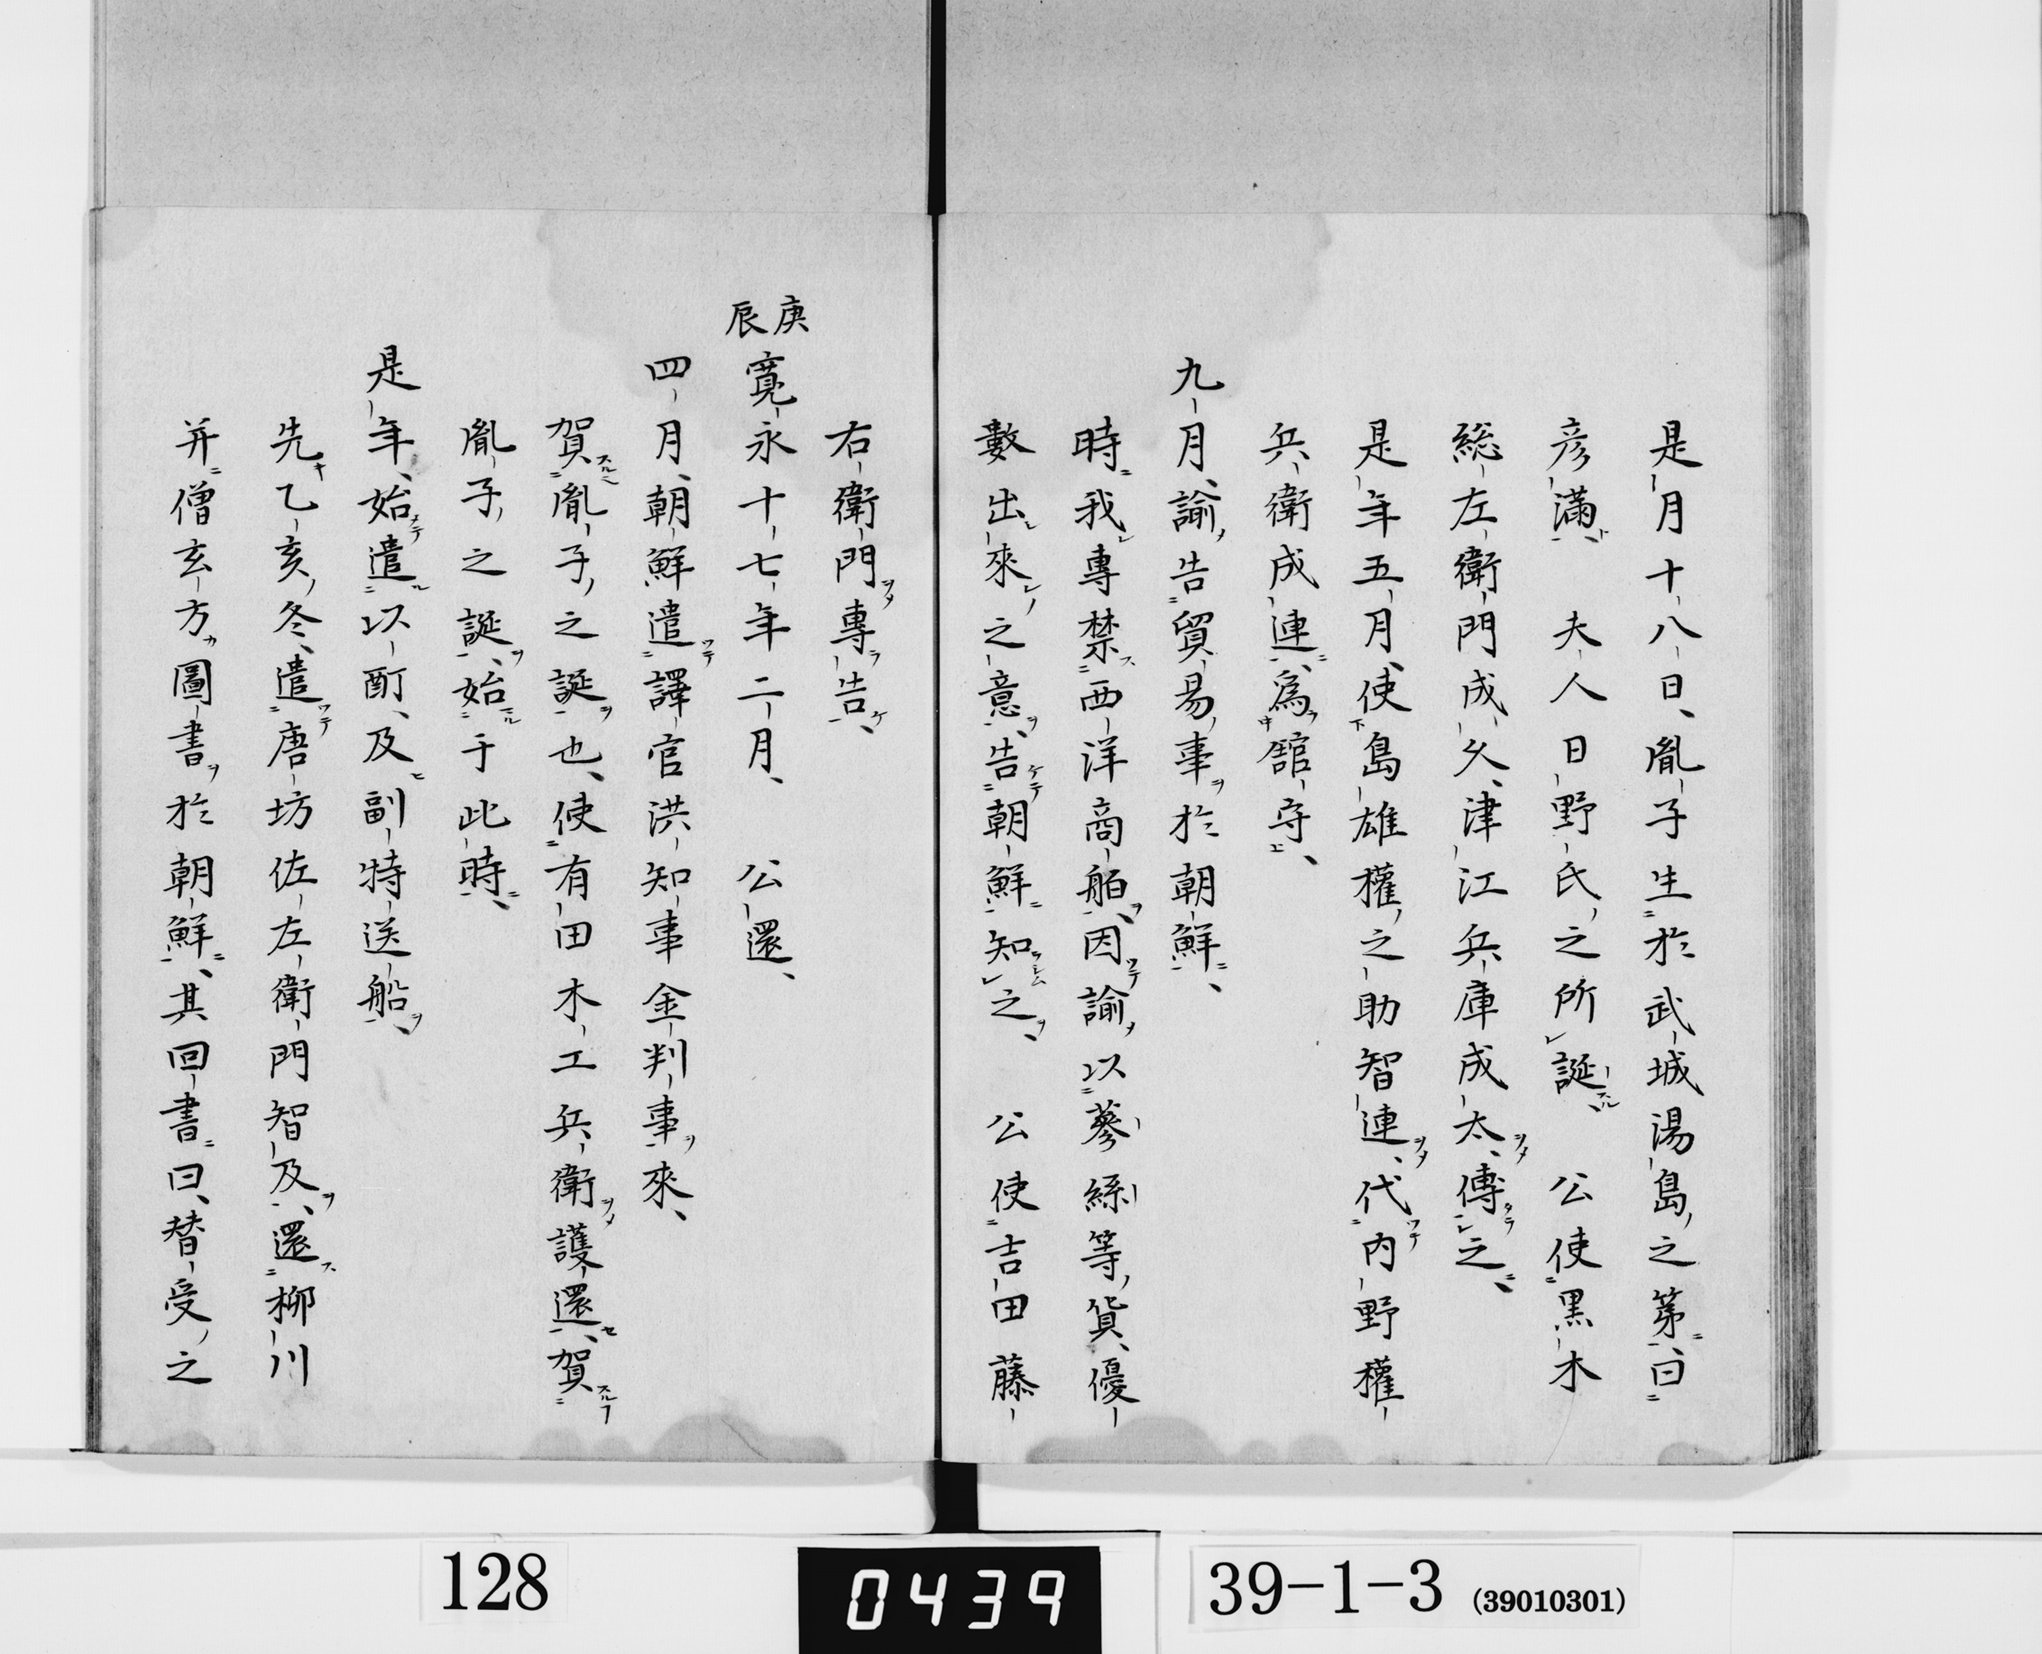 是月十八日、胤子生於武城湯島之第、曰
彦滿、　夫人日野氏之所誕、　公使黒木
総左衛門成久、津江兵庫成太、傳之、
是年五月、使島雄權之助智連、代内野權
兵衛成連、爲舘守、
九月、諭告貿易事於朝鮮、
時我專禁西洋商舶、因諭以蔘絲等貨、優
數出來之意、告朝鮮知之、　公使吉田藤
右衛門專告、
庚辰
寛永十七年二月、　公還、
四月、朝鮮遣譯官洪知事金判事來、
賀胤子之誕也、使有田木工兵衛護還、賀
胤子之誕、始于此時、
是年、始遣以酊、及副特送船、
先乙亥冬、遣唐坊佐左衛門智及、還柳川
并僧玄方圖書於朝鮮、其回書曰、替受之
128
0439
39-1-3 (39010301)